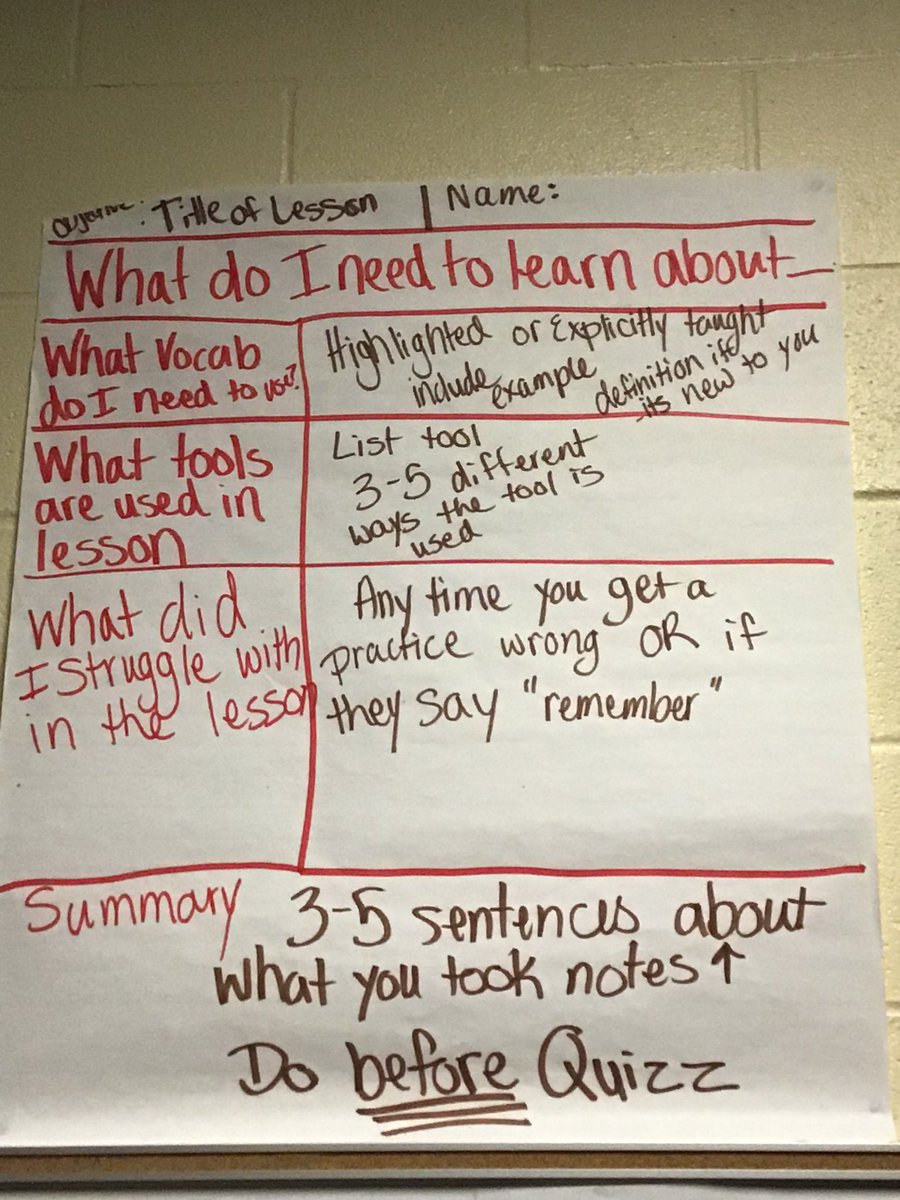 : Title of Lesson | Name:
What do I need to learn about_.
What Vocab
do I need to use?
Highlighted or Explicitly taught
include example
definition if
its new to you
What tools
are used in
lesson
List tool
3-5 different
ways the tool is
used
What did
I struggle with
in the lesson
Any time you get a
practice wrong OR if
they say "remember"
Summary 3-5 sentences about
what you took notes ↑
Do before Quizz